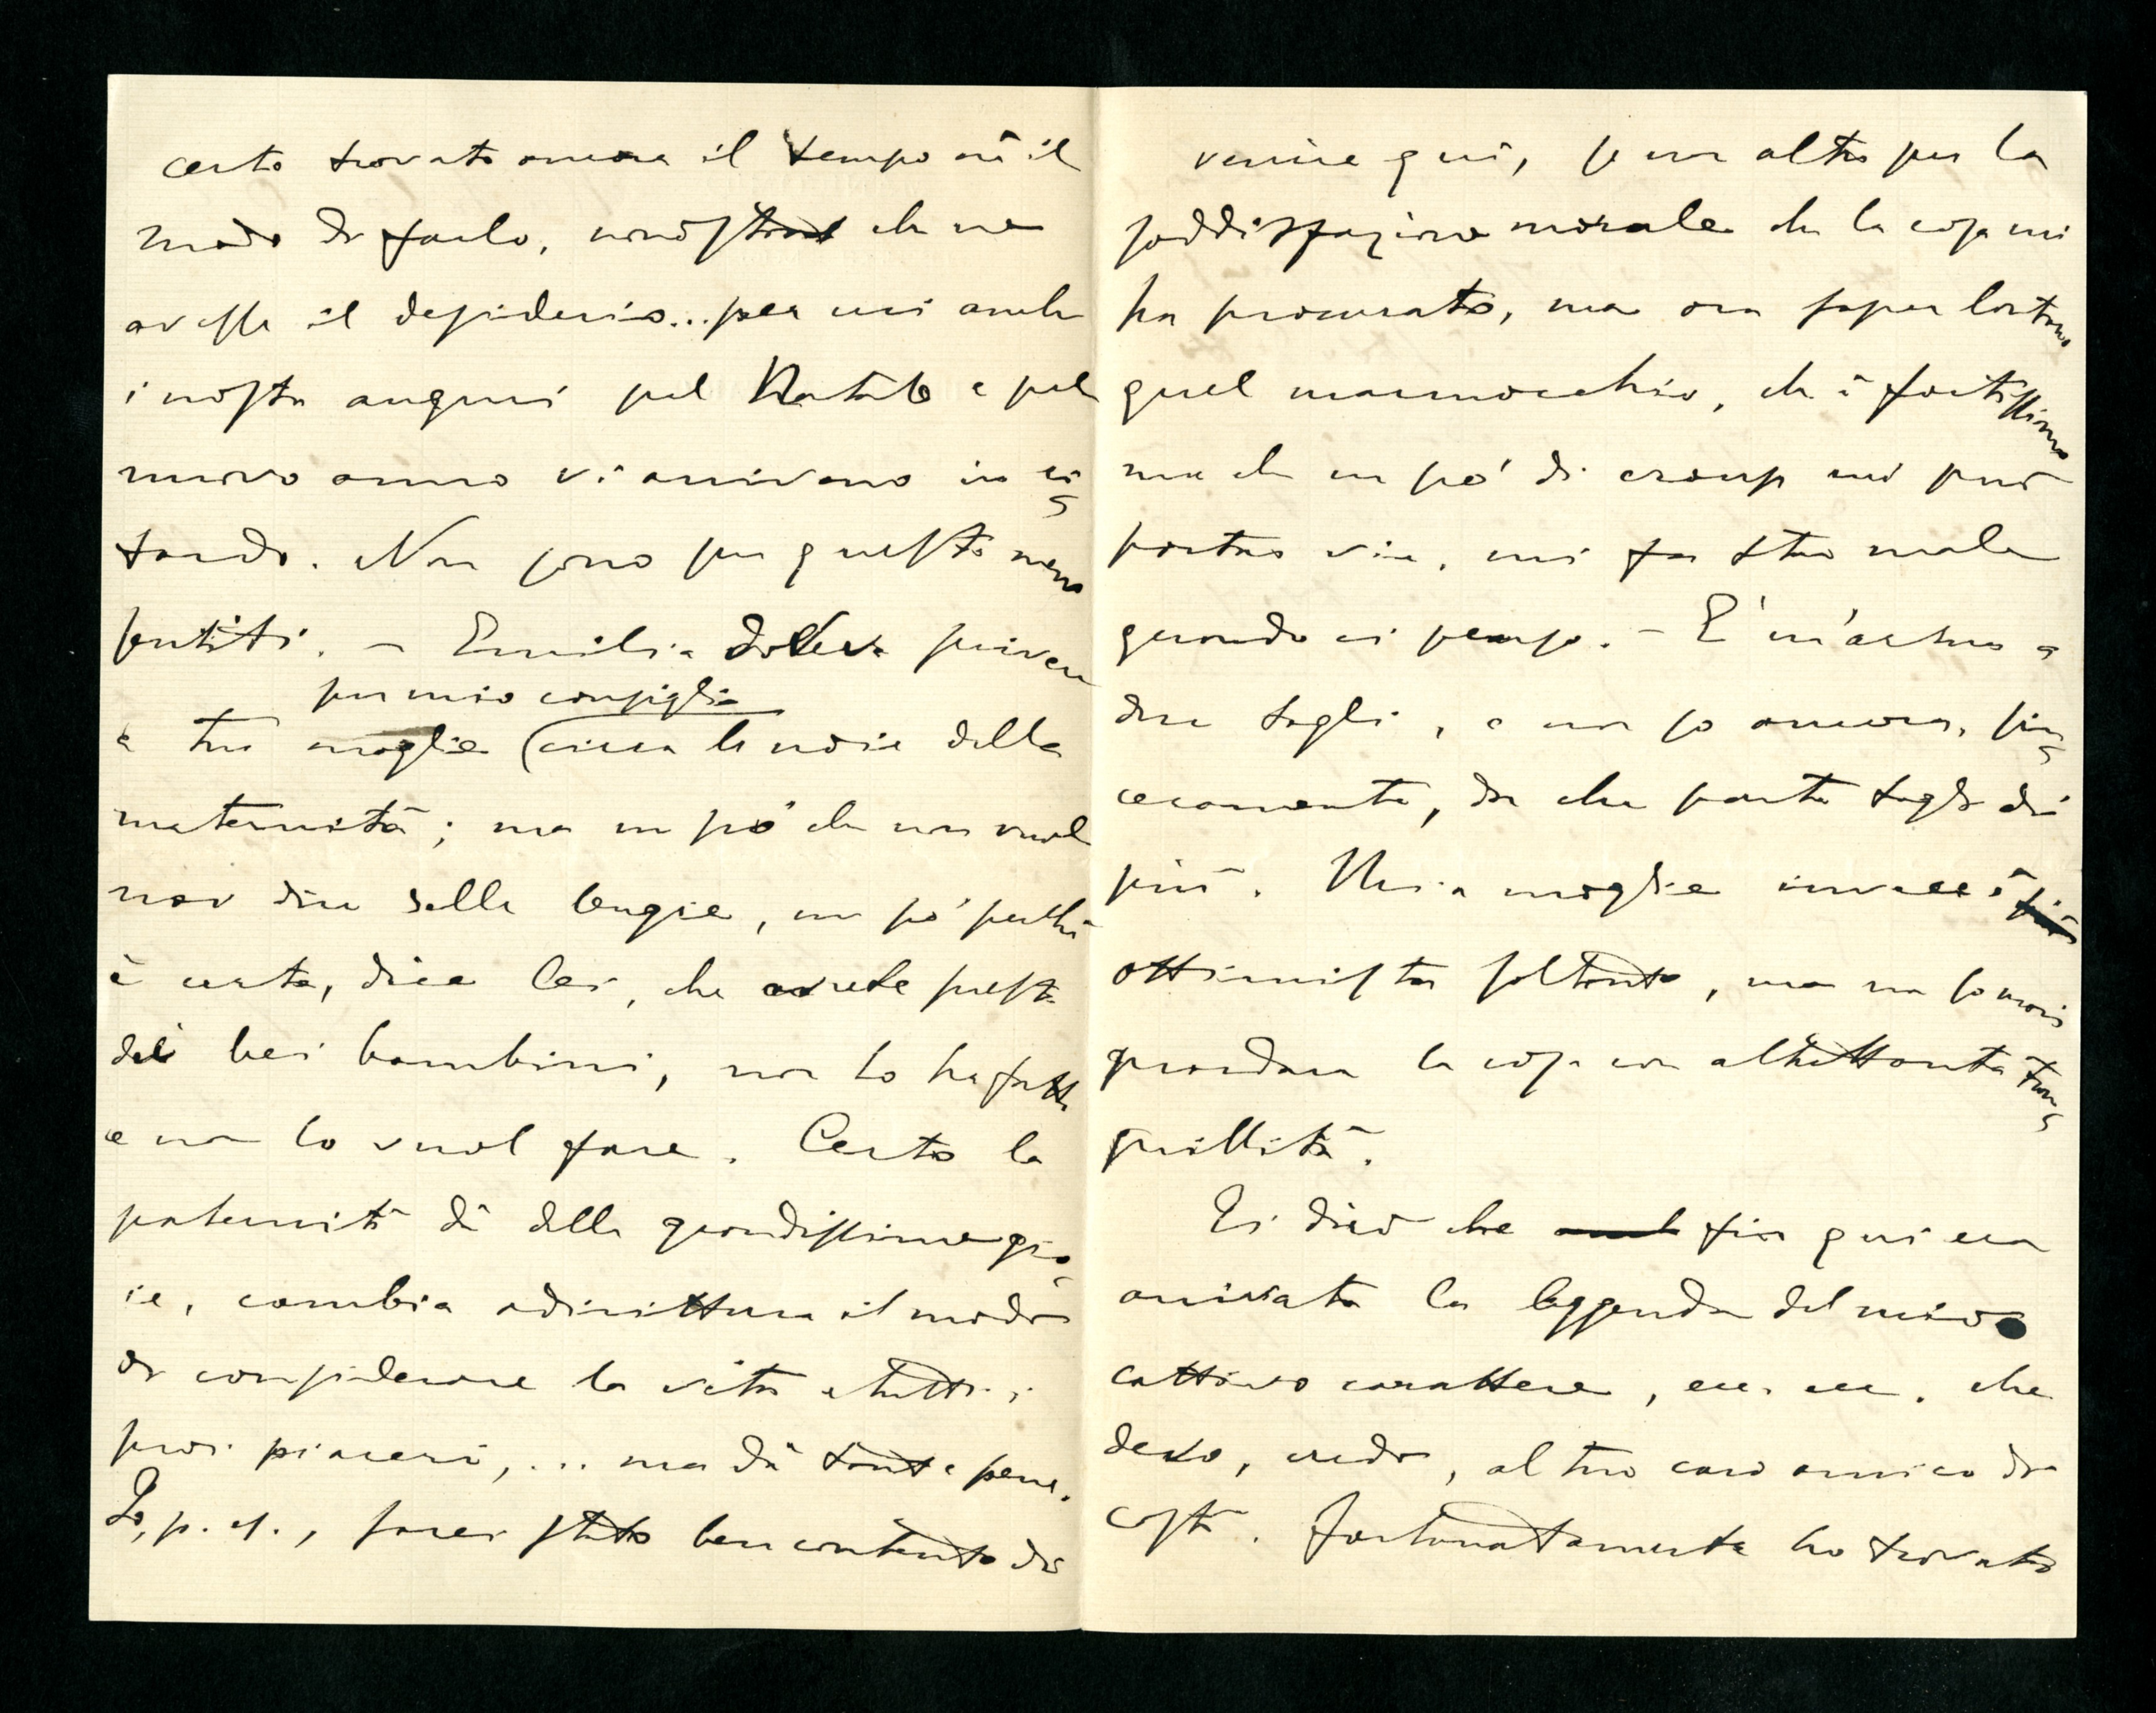 certo trovato ancora il tempo nè il
modo di farlo, nonostante che ne
avessi il desiderio... per cui anche
i nostri auguri pel Natale e pel
nuovo anno vi arrivano in ri-
tardo. Non sono per questo meno
sentiti. – Emilia doveva scrivere
per mio consiglio
a tua moglie (circa le noie della
maternità; ma un po' che non vuol
dire delle bugie, un po' perchè
è certa, dice lei, che avrete presto
dei bei bambini, non lo ha fatto
e non lo vuol fare. Certo la
paternità dà delle grandissime gio-
ie, cambia addirittura il modo
di considerare la vita e tutti i
suoi piaceri,... ma dà tante pene.
Io, p. es., sarei stato ben contento di
venire qui, se non altro per la
soddisfazione morale che la cosa mi
ha procurato, ma ora saper lontano
quel marmocchio, che è fortissimo
ma che un po' di croup mi può
portar via, mi fa star male
quando ci penso. – E' un'arma a
due tagli, e non so ancora, sin-
ceramente, da che parte tagli di
più. Mia moglie invece è più
ottimista soltanto, ma non so mai
guardare la cosa con altrettanta tran-
quillità.
Ti dirò che anche fin qui era
arrivata la leggenda del mio
cattivo carattere, ecc. ecc. che
devo, credo, al tuo caro amico di
costà. Fortunatamente ho trovato